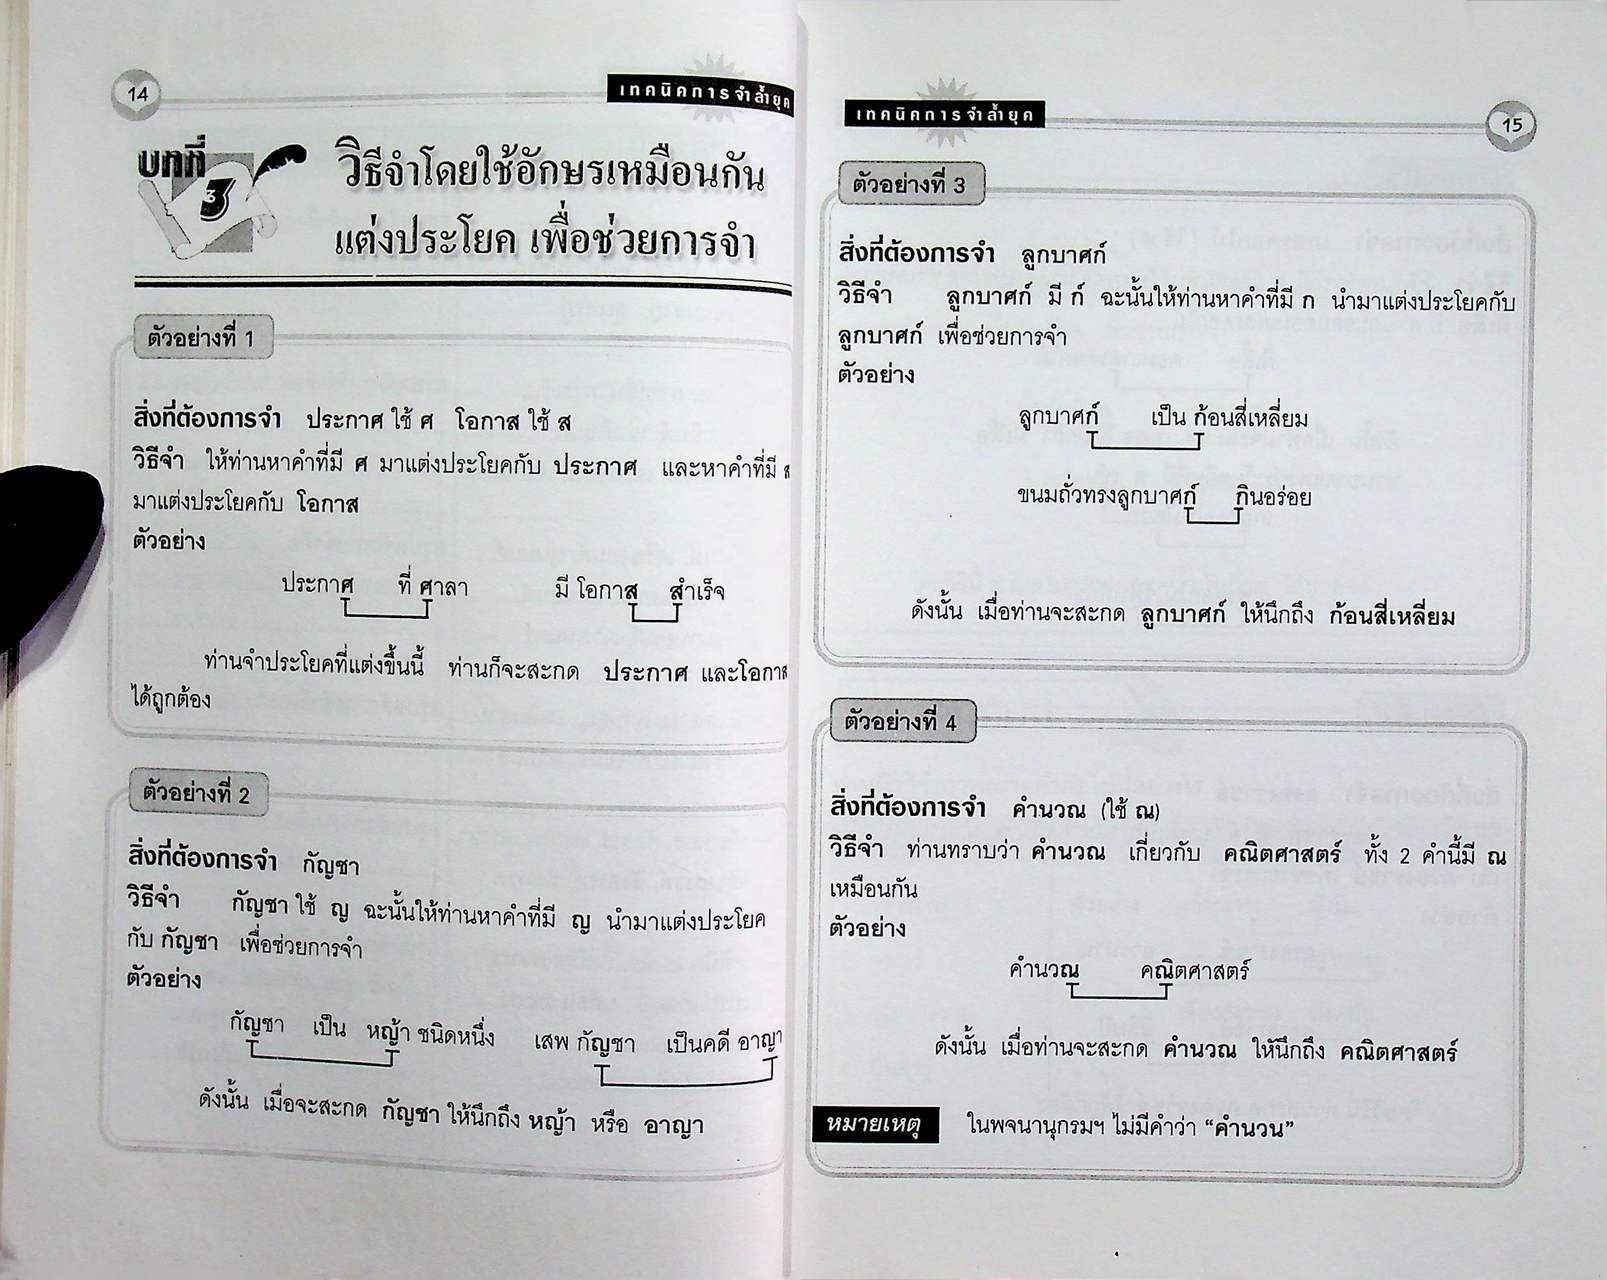 14
เทคนิคการจำล้ำยุค
บทที่
3
วิธีจำโดยใช้อักษรเหมือนกัน
แต่งประโยค เพื่อช่วยการจำ
ตัวอย่างที่ 1
สิ่งที่ต้องการจำ ประกาศ ใช้ ศ โอกาส ใช้ ส
วิธีจำ ให้ท่านหาคำที่มี ศ มาแต่งประโยคกับ ประกาศ และหาคำที่มี ส
มาแต่งประโยคกับ โอกาส
ตัวอย่าง
ประกาศ ที่ ศาลา มี โอกาส สำเร็จ
ท่านจำประโยคที่แต่งขึ้นนี้ ท่านก็จะสะกด ประกาศ และโอกาส
ได้ถูกต้อง
ตัวอย่างที่ 2
สิ่งที่ต้องการจำ กัญชา
วิธีจำ กัญชา ใช้ ญ ฉะนั้นให้ท่านหาคำที่มี ญ นำมาแต่งประโยค
กับ กัญชา เพื่อช่วยการจำ
ตัวอย่าง
กัญชา เป็น หญ้า ชนิดหนึ่ง เสพ กัญชา เป็นคดี อาญา
ดังนั้น เมื่อจะสะกด กัญชา ให้นึกถึง หญ้า หรือ อาญา
เทคนิคการจำล้ำยุค
15
ตัวอย่างที่ 3
สิ่งที่ต้องการจำ ลูกบาศก์
วิธีจำ ลูกบาศก์ มี ก์ ฉะนั้นให้ท่านหาคำที่มี ก นำมาแต่งประโยคกับ
ลูกบาศก์ เพื่อช่วยการจำ
ตัวอย่าง
ลูกบาศก์ เป็น ก้อนสี่เหลี่ยม
ขนมถั่วทรงลูกบาศก์ กินอร่อย
ดังนั้น เมื่อท่านจะสะกด ลูกบาศก์ ให้นึกถึง ก้อนสี่เหลี่ยม
ตัวอย่างที่ 4
สิ่งที่ต้องการจำ คำนวณ (ใช้ ณ)
วิธีจำ ท่านทราบว่า คำนวณ เกี่ยวกับ คณิตศาสตร์ ทั้ง 2 คำนี้มี ณ
เหมือนกัน
ตัวอย่าง
คำนวณ คณิตศาสตร์
ดังนั้น เมื่อท่านจะสะกด คำนวณ ให้นึกถึง คณิตศาสตร์
หมายเหตุ ในพจนานุกรมฯ ไม่มีคำว่า “คำนวน”